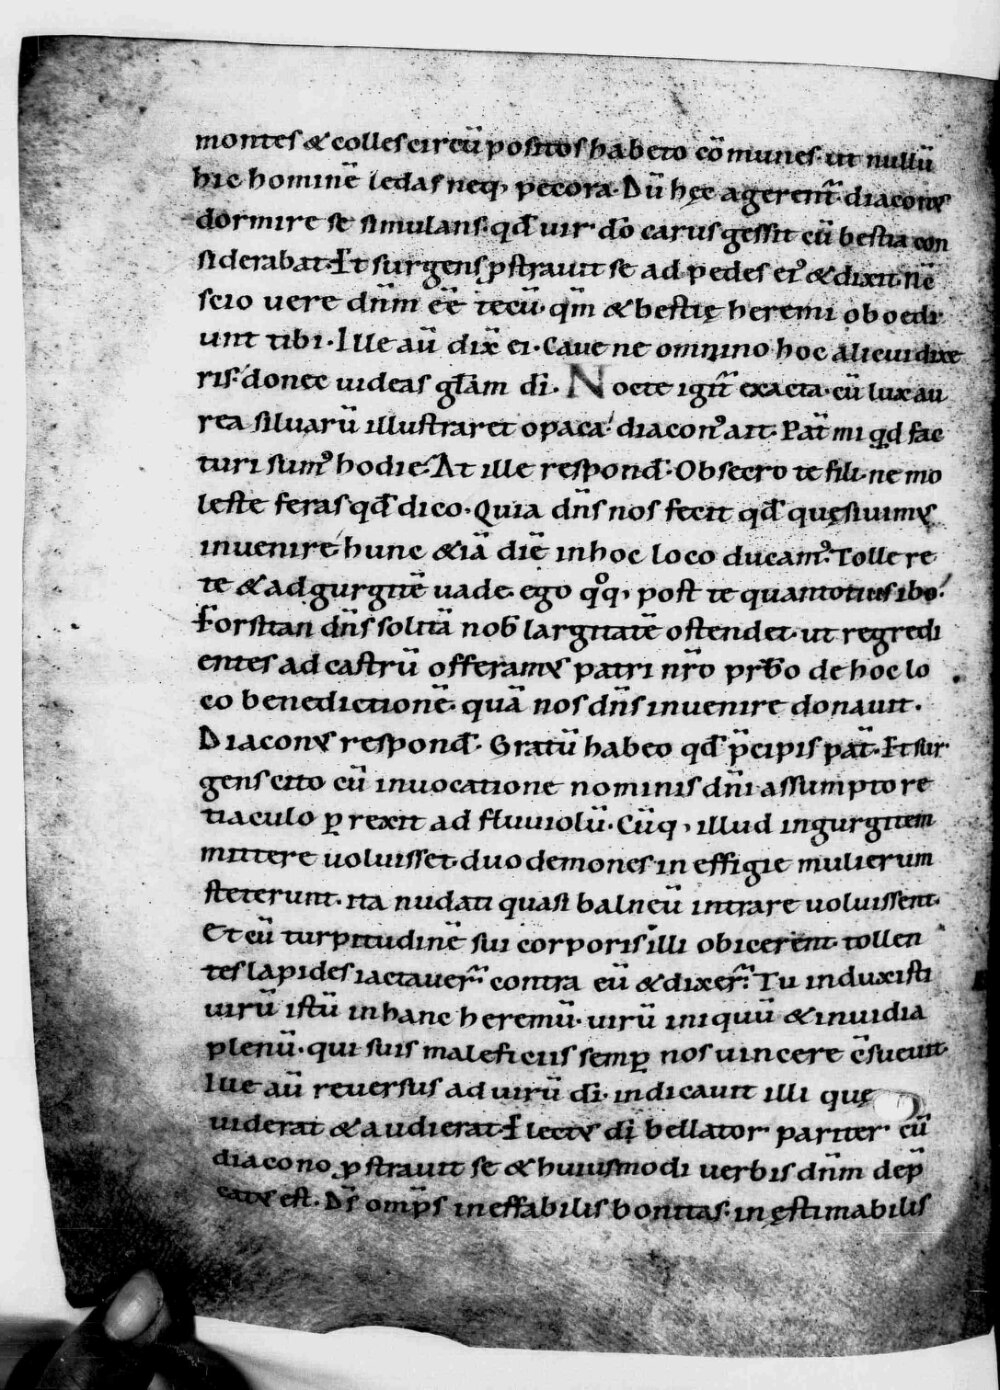 montes & colles circū positos habeto cōmunes. ut nullū
hic hominē ledas neq; pecora. Dū hęc agerent̄. diacon᷒
dormire se simulans. qđ uir dō carus gessit cū bestia con
siderabat. Et surgens ꝓstrauit se ad pedes ei᷒ & dixit. nē
scio uere dn̄m eē tecū. qm̄ & bestię heremi oboedi
unt tibi. Ille aū dix̄ ei. Caue ne omnino hoc alicui dixe
ris. donec uideas gl̄am dī. Nocte igit̄ exacta. cū lux au
rea siluarū illustraret opaca. diacon᷒ ait. Pat̄ mi qđ fac
turi sum᷒ hodie. At ille respond̄. Obsecro te fili. ne mo
leste feras qđ dico. Quia dn̄s nos fecit qđ quęsiuim᷒
inuenire hunc &iā diē in hoc loco ducam᷒. Tolle re
te & ad gurgitē uade. ego qͦq; post te quantotius ibo.
Forsitan dn̄s solitā nob̄ largitatē ostendet. ut regredi
entes ad castrū offeram᷒ patri nr̄o prb̄o de hoc lo
co benedictionē. quā nos dn̄s inuenire donauit.
Diacon᷒ respond̄. Gratū habeo qđ p̄cipis pat̄. Et sur
gens cito cū inuocatione nominis dn̄i assumpto re
tiaculo ꝑrexit ad fluuiolū. Cūq; illud in gurgitem
mittere uoluisset. duo demones in effigie mulierum
steterunt. ita nudati quasi balneū intrare uoluissent.
Et cū turpitudinē sui corporis illi obicerent. tollen
tes lapides iactauer̄ contra eū & dixer̄. Tu induxisti
uirū istū in hanc heremū. uirū iniquū & inuidia
plenū. qui suis maleficiis semꝑ nos uincere c̄sueuit.
Ille aū reuersus ad uirū dī. indicauit illi quę
uiderat & audierat. Elect᷒ dī bellator pariter cū
diacono ꝓstrauit se & huiusmodi uerbis dn̄m dep̄
cat᷒ est. Ds̄ omp̄s ineffabilis bonitas. inęstimabilis